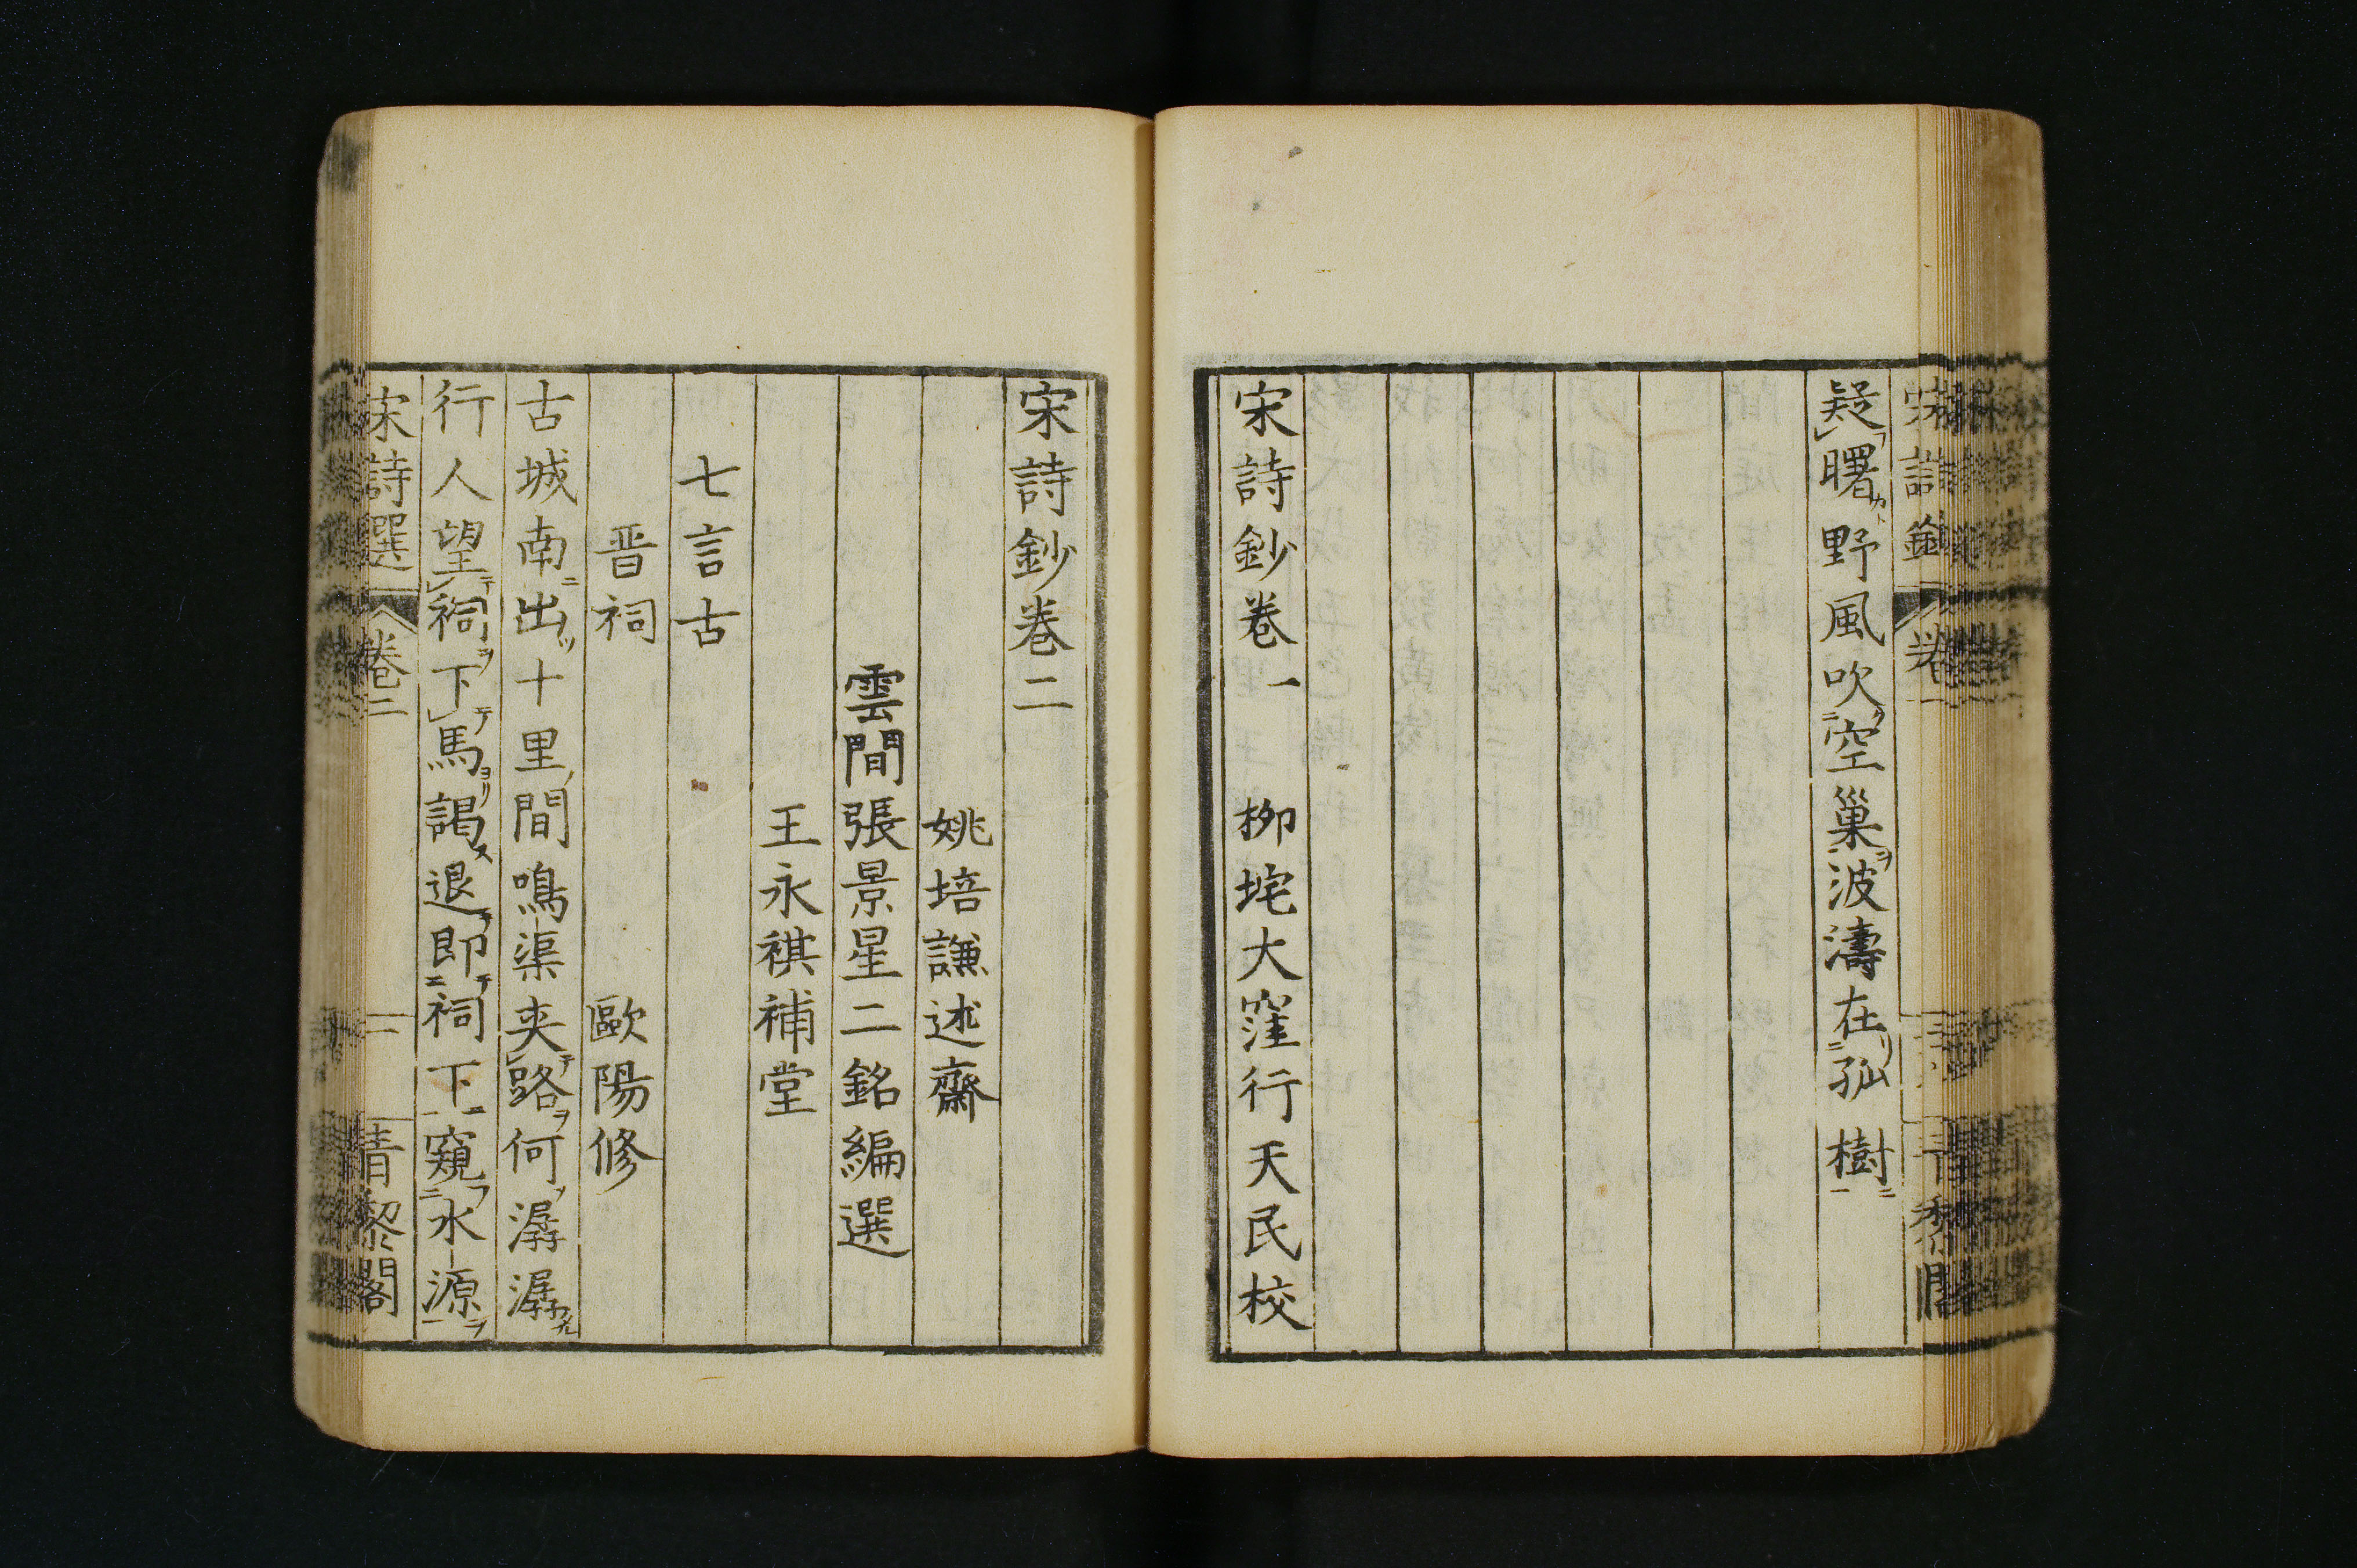 疑曙野風吹空巢波濤在孤樹
宋詩鈔卷一 柳垞大窪行天民校
宋詩鈔卷二
姚培謙述齋
雲間張景星二銘編選
王永祺補堂
七言古
晋祠 歐陽修
古城南出十里間鳴渠夾路何潺潺
行人望祠下馬謁退即祠下窺水源
宋詩選 卷二 一 青黎閣